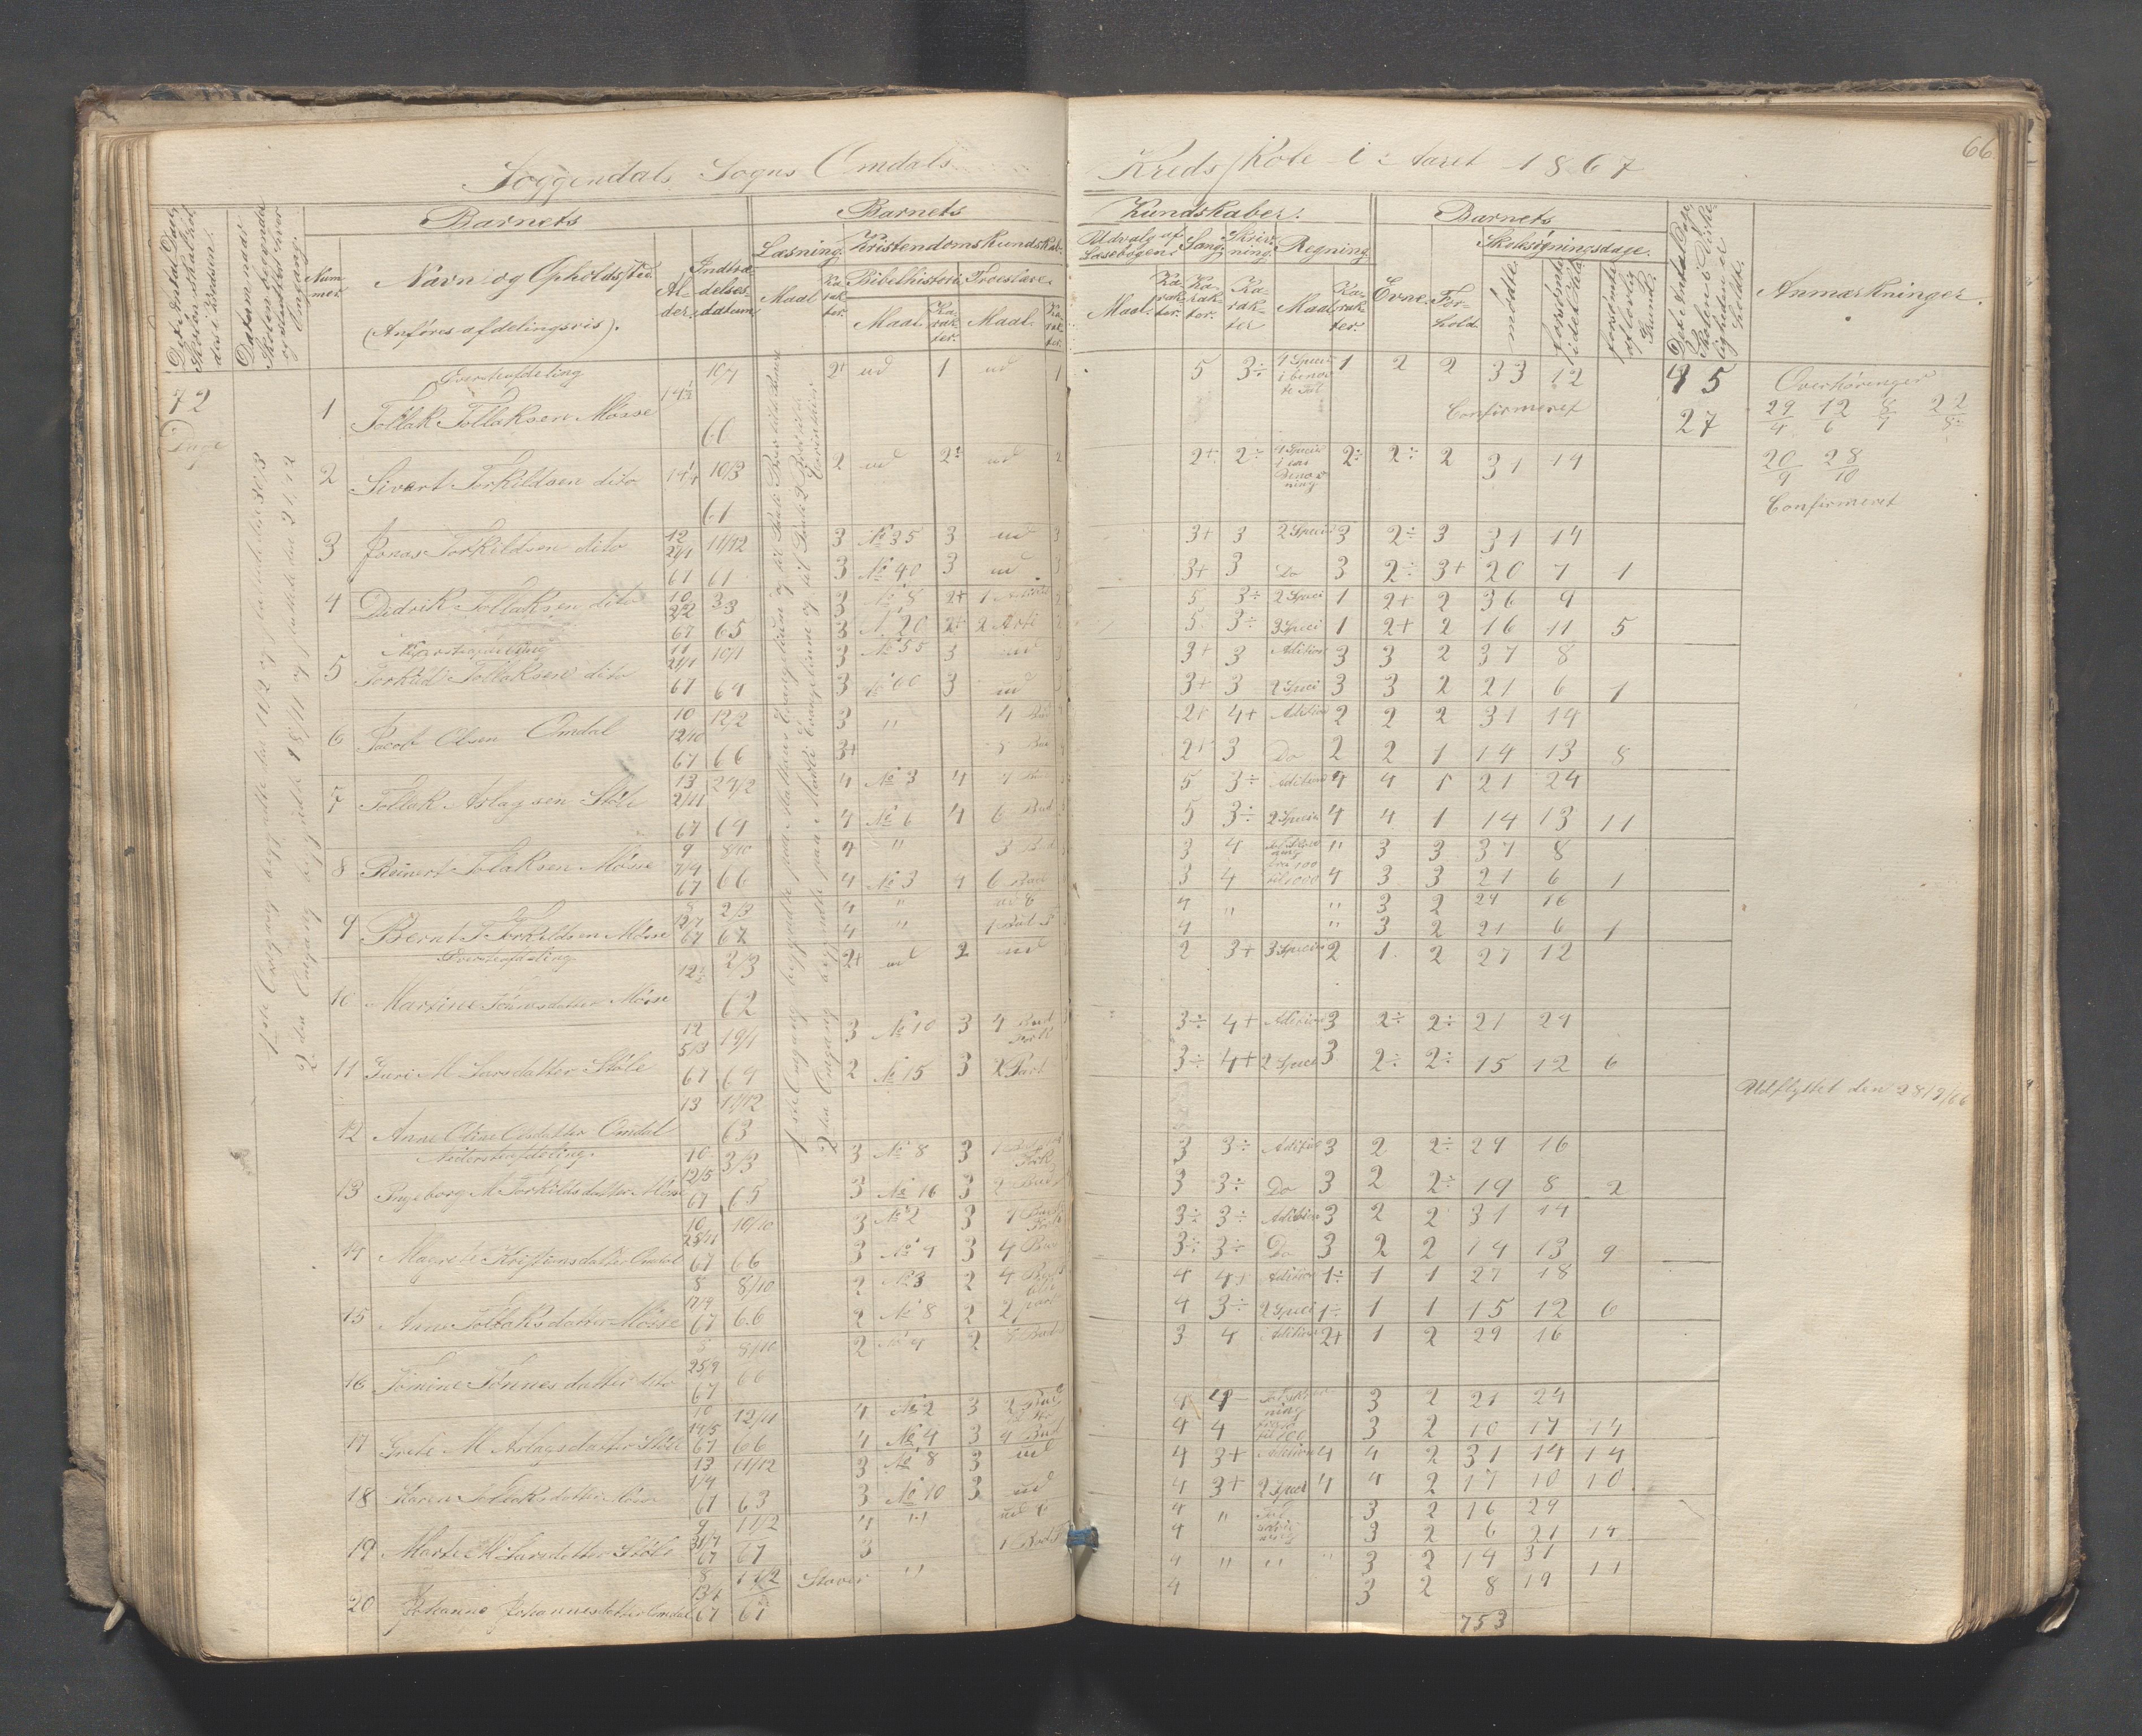 66
Soggendals Sogns Omdals Kredsskole i Aaret 1867
Barnets
Barnets
Kundskaber.
Barnets
Det Antal Dage Skolen skal holdes i Kredsen.
Datum naar Skolen begynder og slutter hver Omgang.
Num-mer.
Navn og Opholdssted
(Anføres afdelingsvis).
Al-der.
Indtræ-delses-datum
Læsning.
Maal
Ka-rak-ter.
Kristendomskundskab.
Bibelhistorie
Troeslære.
Maal.
Ka-rak-ter.
Maal.
Ka-rak-ter.
Udvalg af Læsebogen.
Maal.
Ka-rak-ter.
Sang.
Ka-rak-ter.
Skriv-ning.
Ka-rak-ter
Regning.
Maal
Ka-rak-ter.
Evne.
For-hold.
Skolesøgningsdage.
mødte.
forsømte i det Hele
forsømte af lovlig Grund.
Det Antal Dage Skolen i Virke-ligheden er holdt.
Anmærkninger.
72
Dage
Øversteafdeling
1 Tollak Tollaksen Mosse 14½ 10/1 60 2+ ud 1 ud 1 5 3÷ 4 Speci i benæv te Tal 1 2 2 33 12 45
Confirmeret
27
Overhøringer
29/4 12/6 8/7 22/8
2 Sivert Torkildsen dito 14¼ 10/3 61 2 ud 2÷ ud 2 2+ 2÷ 4 Speci 2÷ 2÷ 2 31 14
20/9 28/10
Confirmeret
3 Jonas Torkildsen dito 12 21/1 67 11/12 61 3 No 35 3 ud 3 3+ 3 2 Speci 3 2÷ 3 31 14
3 No 40 3 ud 3 3+ 3 Do 3 2÷ 3+ 20 7 1
4 Didrik Tollaksen dito 10 2/2 67 3/3 65 3 No 8 2+ 5 3÷ 2 Speci 1 2+ 2 36 9
3 N. 20 2+ 2 Arti 5 3÷ 3 Speci 1 2+ 2 16 11 5
5 Torkild Tollaksen dito 11 21/1 67 10/1 64 3 No 55 3 ud 3 3+ 3 Adition 3 3 2 37 8
3 No 60 3 ud 3+ 3 2 Speci 3 3 2 21 6 1
6 Jacob Olsen Omdal 10 12/10 67 12/2 66 3 " 4 Bud 2+ 4+ Adition 2 2 2 31 14
3+ 2+ 3 Do 2 2 1 14 13 8
7 Tollak Aslagsen Støle 13 2/11 67 24/2 64 4 No 3 4 5 3÷ Adition 4 4 1 21 24
4 No 6 4 6 Bud 5 3÷ 2 Speci 4 4 1 14 13 11
8 Reinert Tolaksen Mosse 9 7/9 67 8/10 66 4 " 3 Bud 3 4 " 3 3 37 8
4 No 3 4 6 Bud 3 4 fra 100 til 1000 4 3 3 21 6 1
9 Bernt T Torkildsen Mosse 8 12/7 67 2/3 67 4 " 4 " " 3 2 24 16
4 " 4 " 3 2 21 6 1
Øversteafdeling
10 Maxine Tønnesdatter Mosse 12½ 2/3 62 2+ ud 2 ud 2 3+ 3 Speci 2 1 2 27 12
11 Guri M Larsdatter Støle 12 5/3 67 19/1 64 3 No 10 3 4 Bud 3÷ 4+ Adition 3 2÷ 2÷ 21 24
2 No 15 3 2 Part 3÷ 4+ 2 Speci 3 2÷ 2÷ 15 12 6
12 Anne Oline Olsdatter Omdal 13 11/12 63
Udflyttet den 28/9/66
Nedersteafdeling.
13 Ingeborg M Torkildsdatter Mosse 10 12/5 67 3/3 65 3 No 8 3 3 3÷ Adition 3 2 2÷ 29 16
3 No 16 3 2 Bud 3 3÷ Do 3 2 2÷ 19 8 2
14 Magrete Kristiansdatter Omdal 10 23/11 67 10/10 66 3 No 2 3 3÷ 3÷ Adition 3 2 2 31 14
3 No 4 3 4 Bud 3÷ 3÷ Do 3 2 2 14 13 9
15 Anne Tollaksdatter Mosse 8 17/9 67 8/10 66 2 No 3 2 4 4+ Adition 1÷ 1 1 27 18
2 No 8 2 2 part 4 3÷ 2 Speci 1÷ 1 1 15 12 6
16 Tomine Tønnesdatter dito 8 25/9 67 8/10 66 2 No 4 2 3 4 Adition 2+ 1 2 29 16
17 Grete M Aslagsdatter Støle 10 14/5 67 12/11 66 4 No 2 3 2 Bud 4 3 2 21 24
4 No 4 3 4 Bud 4 4 3 2 10 17 14
18 Karen Tollaksdatter Mosse 13 1/9 67 11/12 63 3 No 8 3 ud 4 3+ Adition 4 4 2 31 14 14
3 No 10 3 ud 4 3+ 2 Speci 4 4 2 17 10 10
19 Marte M Larsdatter Støle 9 31/7 67 11/2 67 4 " 4 " 3 2 16 29
3 4 3 2 6 21 14
20 Johanne Johannesdatter Omdal 8 67 11/2 67 Staver " 4 " " " 3 2 14 31
4 3 2 8 19 11
753
1ste Omgang begyndte den 11/2 og sluttede den 30/3
2den Omgang begyndte 18/11 og sluttede den 21/12
1ste Omgang begyndte paa Matthæus Evangelium
2den Omgang begyndte paa Marki Evangelium og til Pauli 2 Brev til de Corinthier